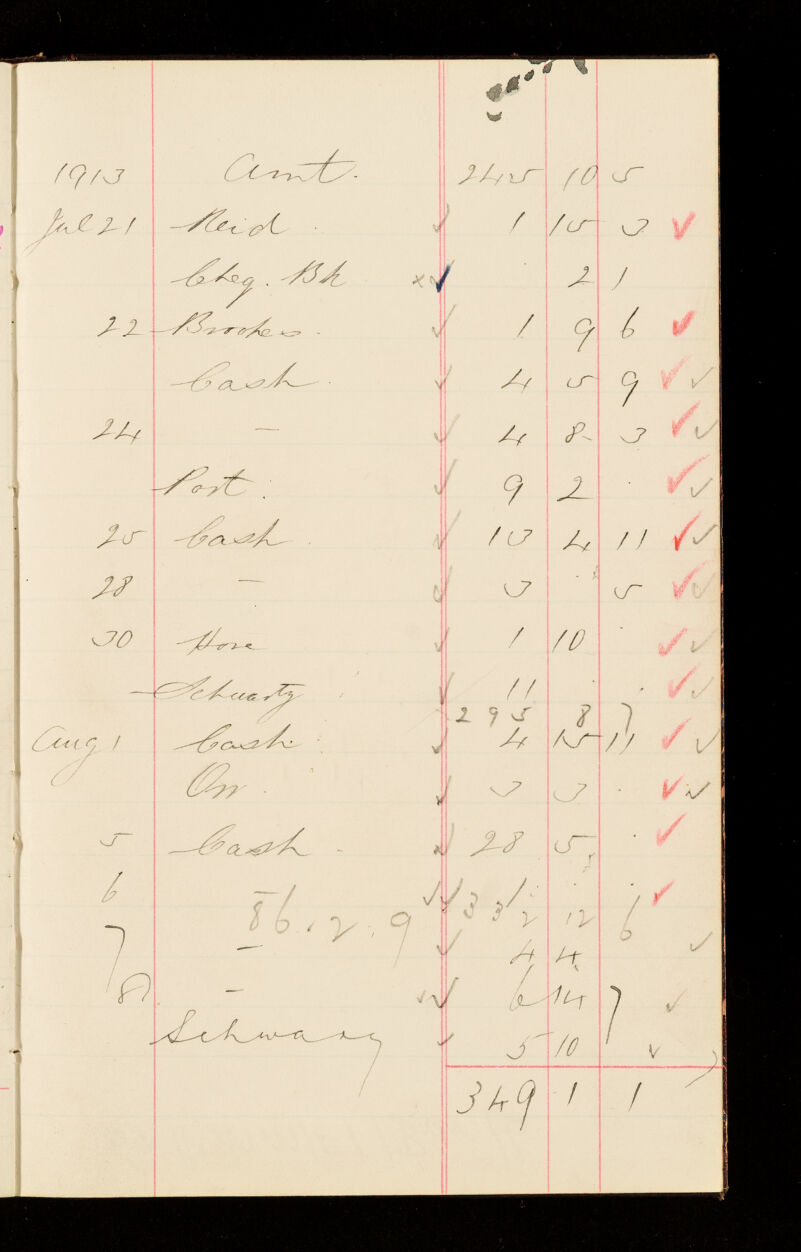 1913 Amt. 245 10 5
Jul 21 Reid. ✓ 1 15 3 ✓
Cheq. Bk ×✓ 2 1
22 Brookes. ✓ 1 9 6 ✓
Cash. ✓ 4 5 9 ✓ ✓
24 — ✓ 4 8 3 ✓ ✓
Port. ✓ 9 2 . ✓ ✓
25 Cash. ✓ 13 4 11 ✓ ✓
28 — ✓ 3 . 5 ✓ ✓
30 Hore ✓ 1 10 . ✓ ✓
Schwartz ✓ 11 . . ✓ ✓
295 8 7
Aug 1 Cash. ✓ 4 15 11 ✓ ✓
Orr. ✓ 3 3 . ✓ ✓
5 Cash. ✓ 28 5 . ✓
6 — ✓✓ 1 . . ✓
86.2.9 332 12 6
7 — ✓ 4 4 ✓
8 — ✓✓ 6 14 7 ✓
Schwarz ✓ 5 10 ✓
349 1 1